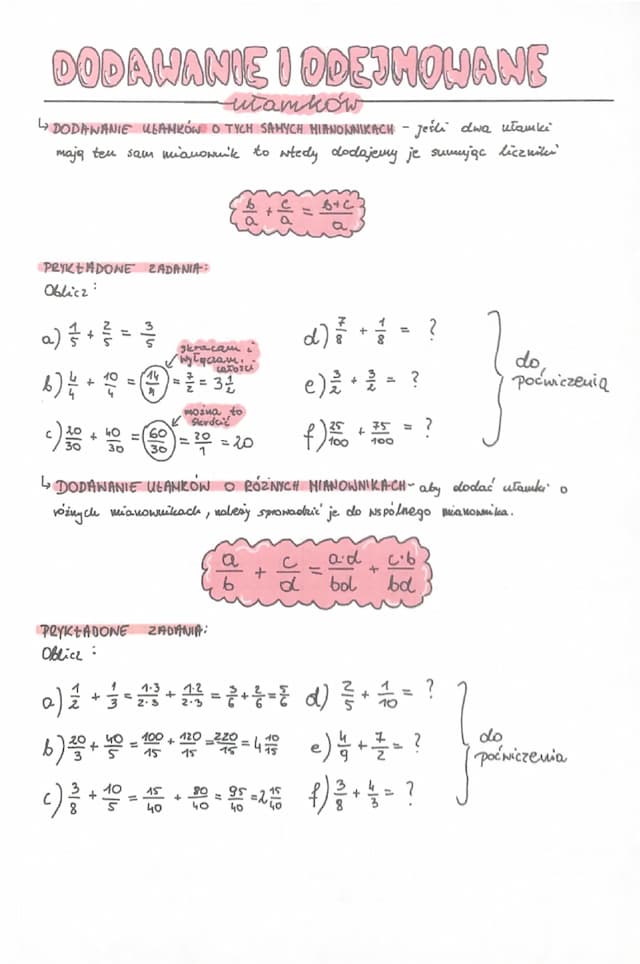 DODAWANIE I ODEJMOWANE
ułamków
↳ DODAWANIE UŁAMKÓW O TYCH SAMYCH MIANOWNIKACH - jeśli dwa ułamki
mają ten sam mianownik to wtedy dodajemy je sumując liczniki
b/a + c/a = b+c/a
PRYKŁADONE ZADANIA:
Oblicz:
a) 1/5 + 2/5 = 3/5
skracam i
wyłączam
całości
b) 4/4 + 10/4 = 14/4 = 7/2 = 3 1/2
można to
skrócić
c) 20/30 + 40/30 = 60/30 = 20/1 = 20
d) 7/8 + 1/8 = ?
e) 3/2 + 3/2 = ?
f) 25/100 + 75/100 = ?
do
poćwiczenia
↳ DODAWANIE UŁAMKÓW O RÓŻNYCH MIANOWNIKACH - aby dodać ułamki o
różnych mianownikach, należy sprowadzić je do wspólnego mianownika.
a/b + c/d = a·d/bd + c·b/bd
PRYKŁADONE ZADANIA:
Oblicz:
a) 1/2 + 1/3 = 1·3/2·3 + 1·2/2·3 = 3/6 + 2/6 = 5/6
b) 20/3 + 40/5 = 100/15 + 120/15 = 220/15 = 4 10/15
c) 3/8 + 10/5 = 15/40 + 80/40 = 95/40 = 2 15/40
d) 2/5 + 1/10 = ?
e) 4/9 + 7/2 = ?
f) 3/8 + 4/3 = ?
do
poćwiczenia